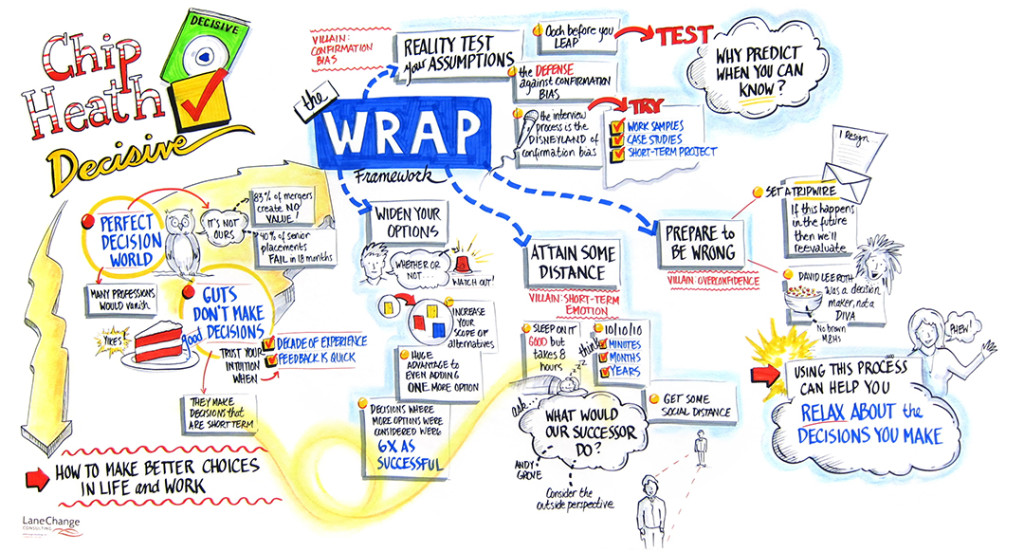 Chip
Heath
Decisive
DECISIVE
PERFECT
DECISION
WORLD
IT'S NOT
OURS
83% of mergers
create NO
VALUE!
40% of senior
placements
FAIL in 18 months
MANY PROFESSIONS
WOULD vanish.
GUTS
DON'T MAKE
good DECISIONS
YIKES!
TRUST YOUR
INTUITION
WHEN
DECADE OF EXPERIENCE
FEEDBACK IS QUICK
THEY MAKE
DECISIONS that
ARE SHORT TERM
HOW TO MAKE BETTER CHOICES
IN LIFE and WORK
LaneChange
CONSULTING
the
WRAP
Framework
VILLAIN:
CONFIRMATION
BIAS
REALITY TEST
your ASSUMPTIONS
Ooch before you
LEAP
TEST
the DEFENSE
against CONFIRMATION
BIAS
the interview
process is the
DISNEYLAND of
confirmation bias
TRY
WORK SAMPLES
CASE STUDIES
SHORT-TERM PROJECT
WHY PREDICT
WHEN YOU CAN
KNOW?
WIDEN YOUR
OPTIONS
WHETHER OR
NOT...
WATCH OUT!
INCREASE
YOUR
SCOPE OF
alternatives
HUGE
ADVANTAGE to
EVEN ADDING
ONE MORE OPTION
DECISIONS WHERE
MORE OPTIONS WERE
CONSIDERED WERE
6X AS
SUCCESSFUL
ATTAIN SOME
DISTANCE
VILLAIN: SHORT-TERM
EMOTION
SLEEP ON IT
GOOD but
takes 8
hours
think
10/10/10
MINUTES
MONTHS
YEARS
ask...
WHAT WOULD
OUR SUCCESSOR
DO?
ANDY
GROVE
Consider the
outside perspective
GET SOME
SOCIAL DISTANCE
PREPARE to
BE WRONG
VILLAIN: OVERCONFIDENCE
I Resign
SET A TRIPWIRE
If this happens
in the future
then we'll
reevaluate
DAVID LEE ROTH
was a decision
maker, not a
DIVA
No brown
M&Ms
PHEW!
USING THIS PROCESS
CAN HELP YOU
RELAX ABOUT the
DECISIONS YOU MAKE